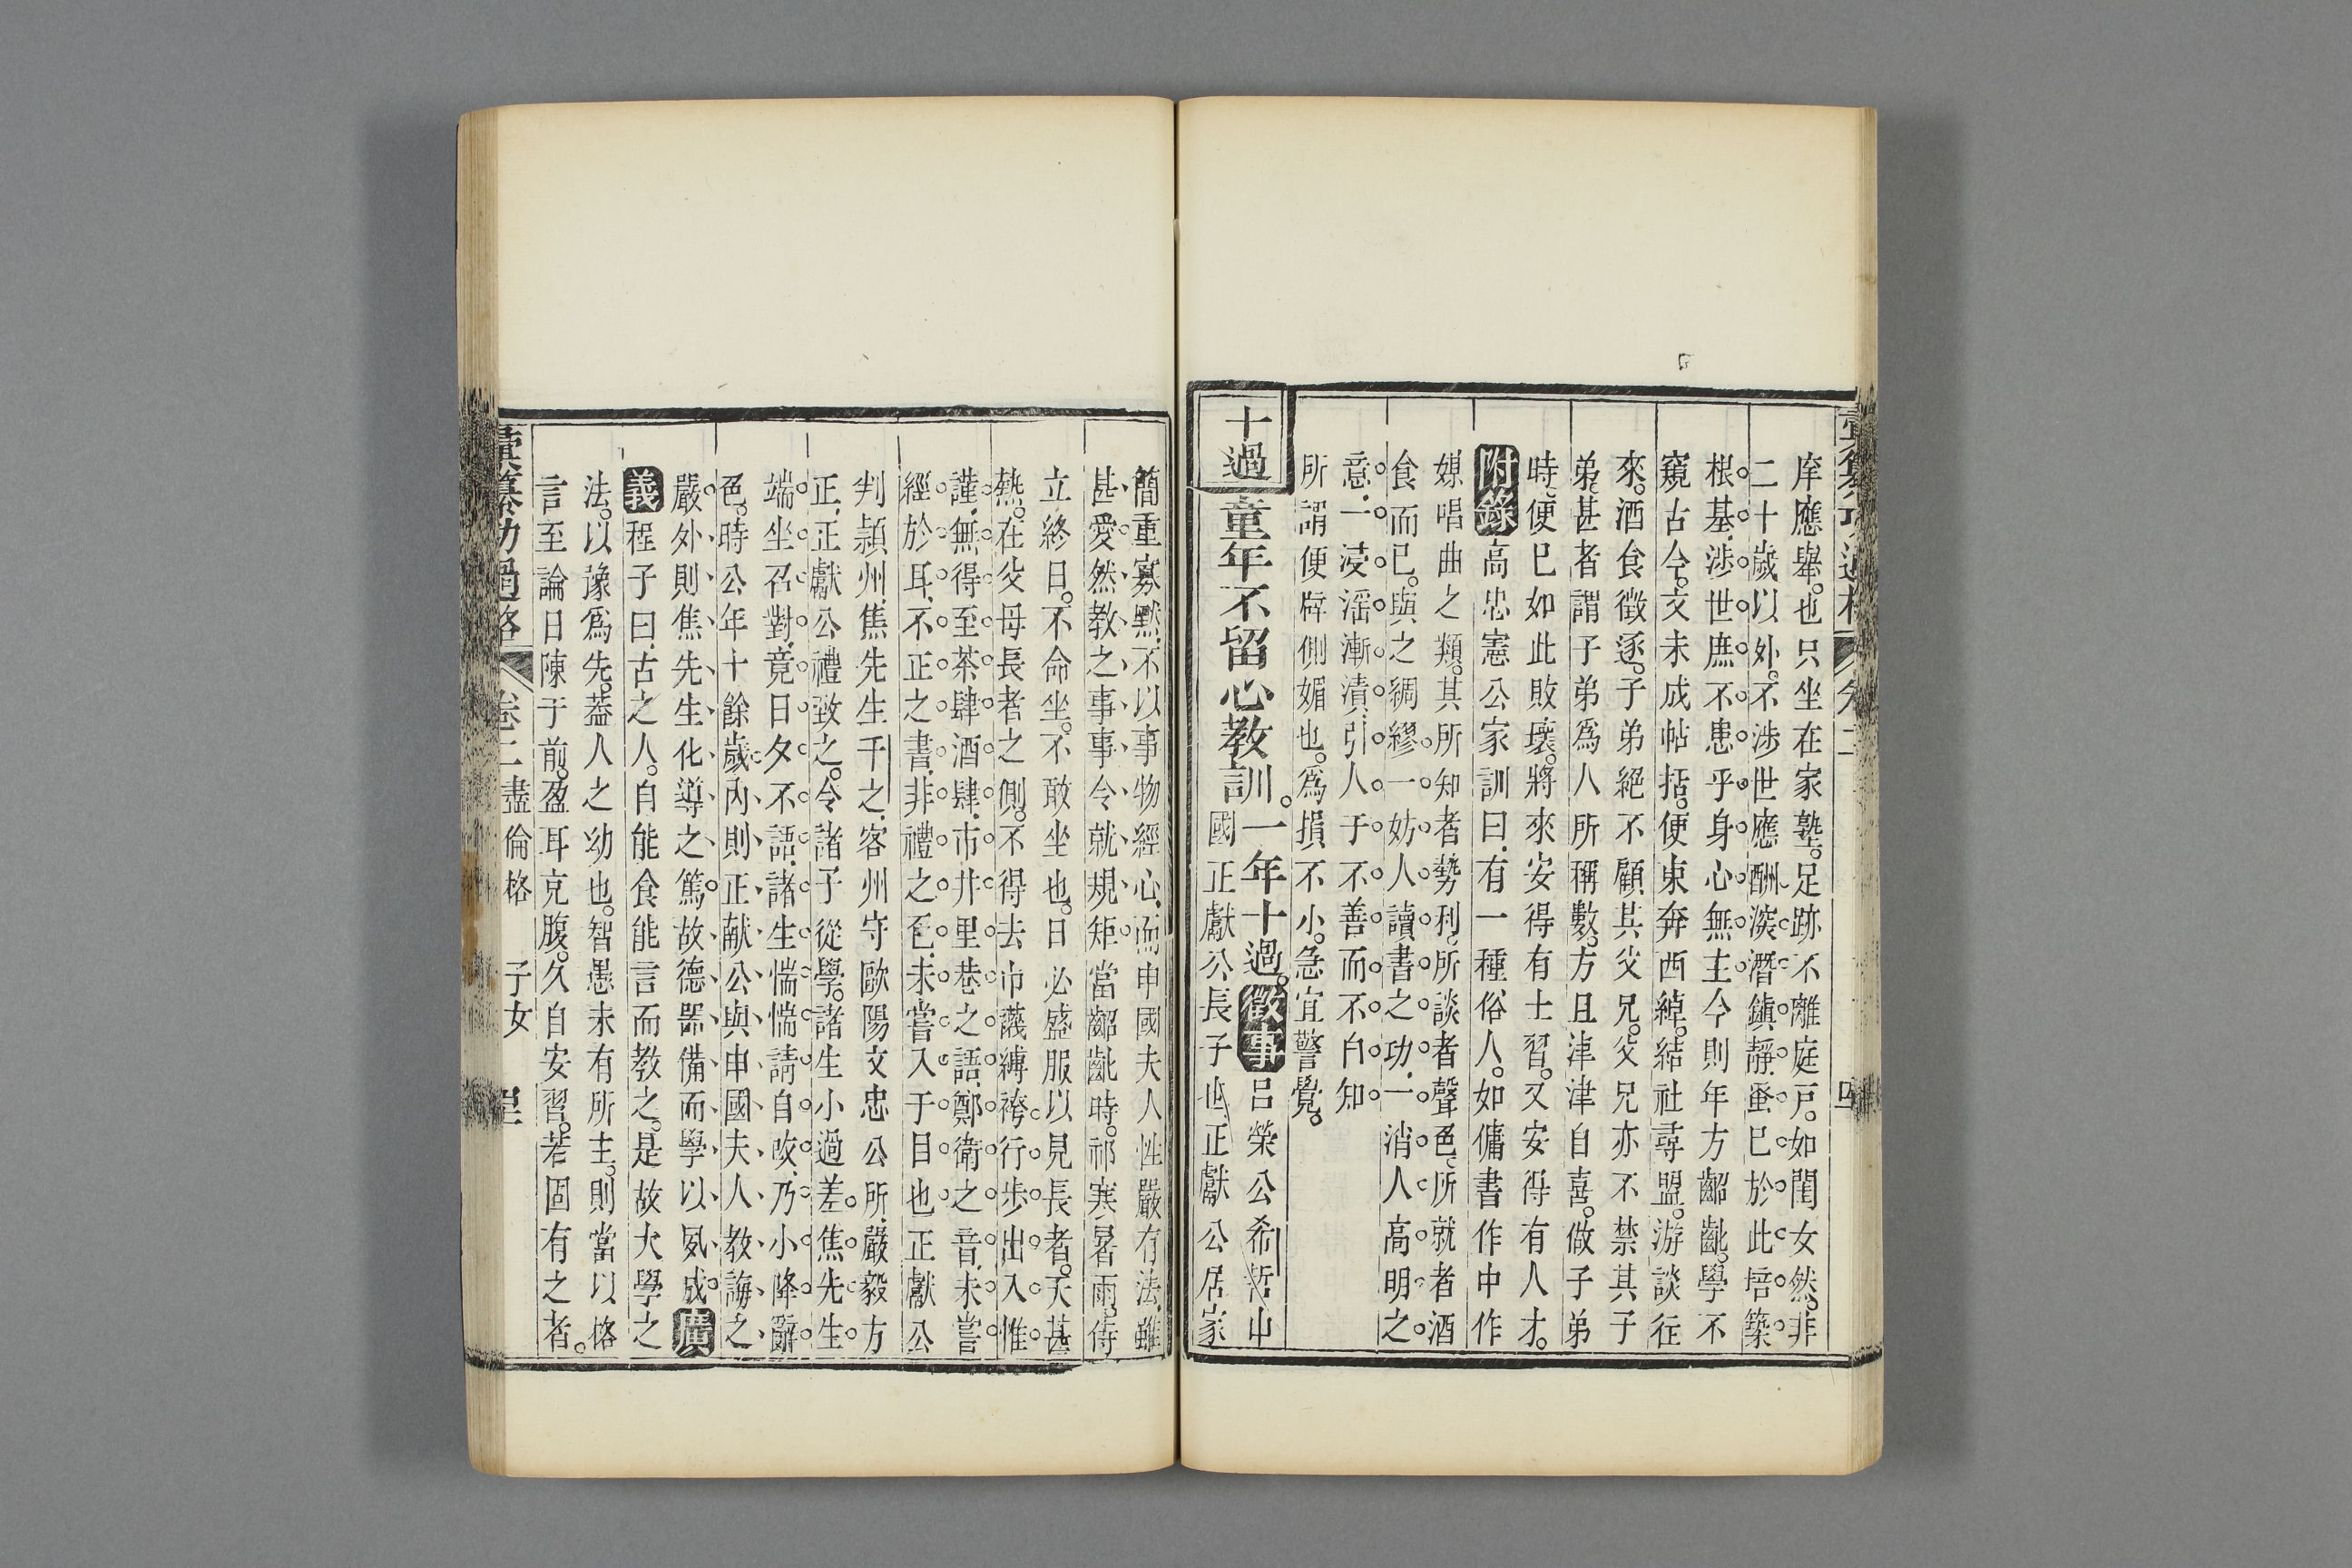 庠應舉。也只坐在家塾。足跡不離庭戸。如閨女然。非
二十歲以外。不涉世應酬。深潛鎮靜。蚤已於此培築
根基。涉世庶不患乎身心無主。今則年方齠齔。學不
窺古今。文未成帖括。便東奔西綽。結社尋盟。游談往
來。酒食徵逐。子弟絕不顧其父兄。父兄亦不禁其子
弟。甚者謂子弟爲人所稱數。方且津津自喜。做子弟
時。便已如此敗壞。將來安得有士習。又安得有人才。
附錄高忠憲公家訓曰。有一種俗人。如傭書作中作
媒唱曲之類。其所知者勢利。所談者聲色。所就者酒
食而已。與之綢繆。一妨人讀書之功。一消人高明之
意。一浸淫漸漬。引人于不善而不自知。
所謂便辟側媚也。爲損不小。急宜警覺。
十過
童年不留心教訓。一年十過。徵事呂榮公希哲申
國正獻公長子也。正獻公居家
簡重寡默。不以事物經心。而申國夫人性嚴有法。雖
甚愛。然教之事事令就規矩。當齠齔時。祁寒暑雨。侍
立終日。不命坐。不敢坐也。日必盛服以見長者。天甚
熱。在父母長者之側。不得去巾襪縛袴。行步出入惟
謹。無得至茶肆酒肆。市井里巷之語。鄭衛之音。未嘗
經於耳。不正之書。非禮之色。未嘗入于目也。正獻公
判頴州。焦先生千之。客州守歐陽文忠公所。嚴毅方
正。正獻公禮致之。令諸子從學。諸生小過差。焦先生
端坐。召對。竟日夕不語。諸生惴惴請自改。乃小降辭
色。時公年十餘歲。內則正献公與申國夫人教誨之
嚴。外則焦先生化導之篤。故德器備而學以夙成。廣
義程子曰。古之人。自能食能言而教之。是故大學之
法。以豫爲先。葢人之幼也。智愚未有所主。則當以格
言至論日陳于前。盈耳充腹。久自安習。若固有之者。
彙纂功過格 卷二 盡倫格 子女